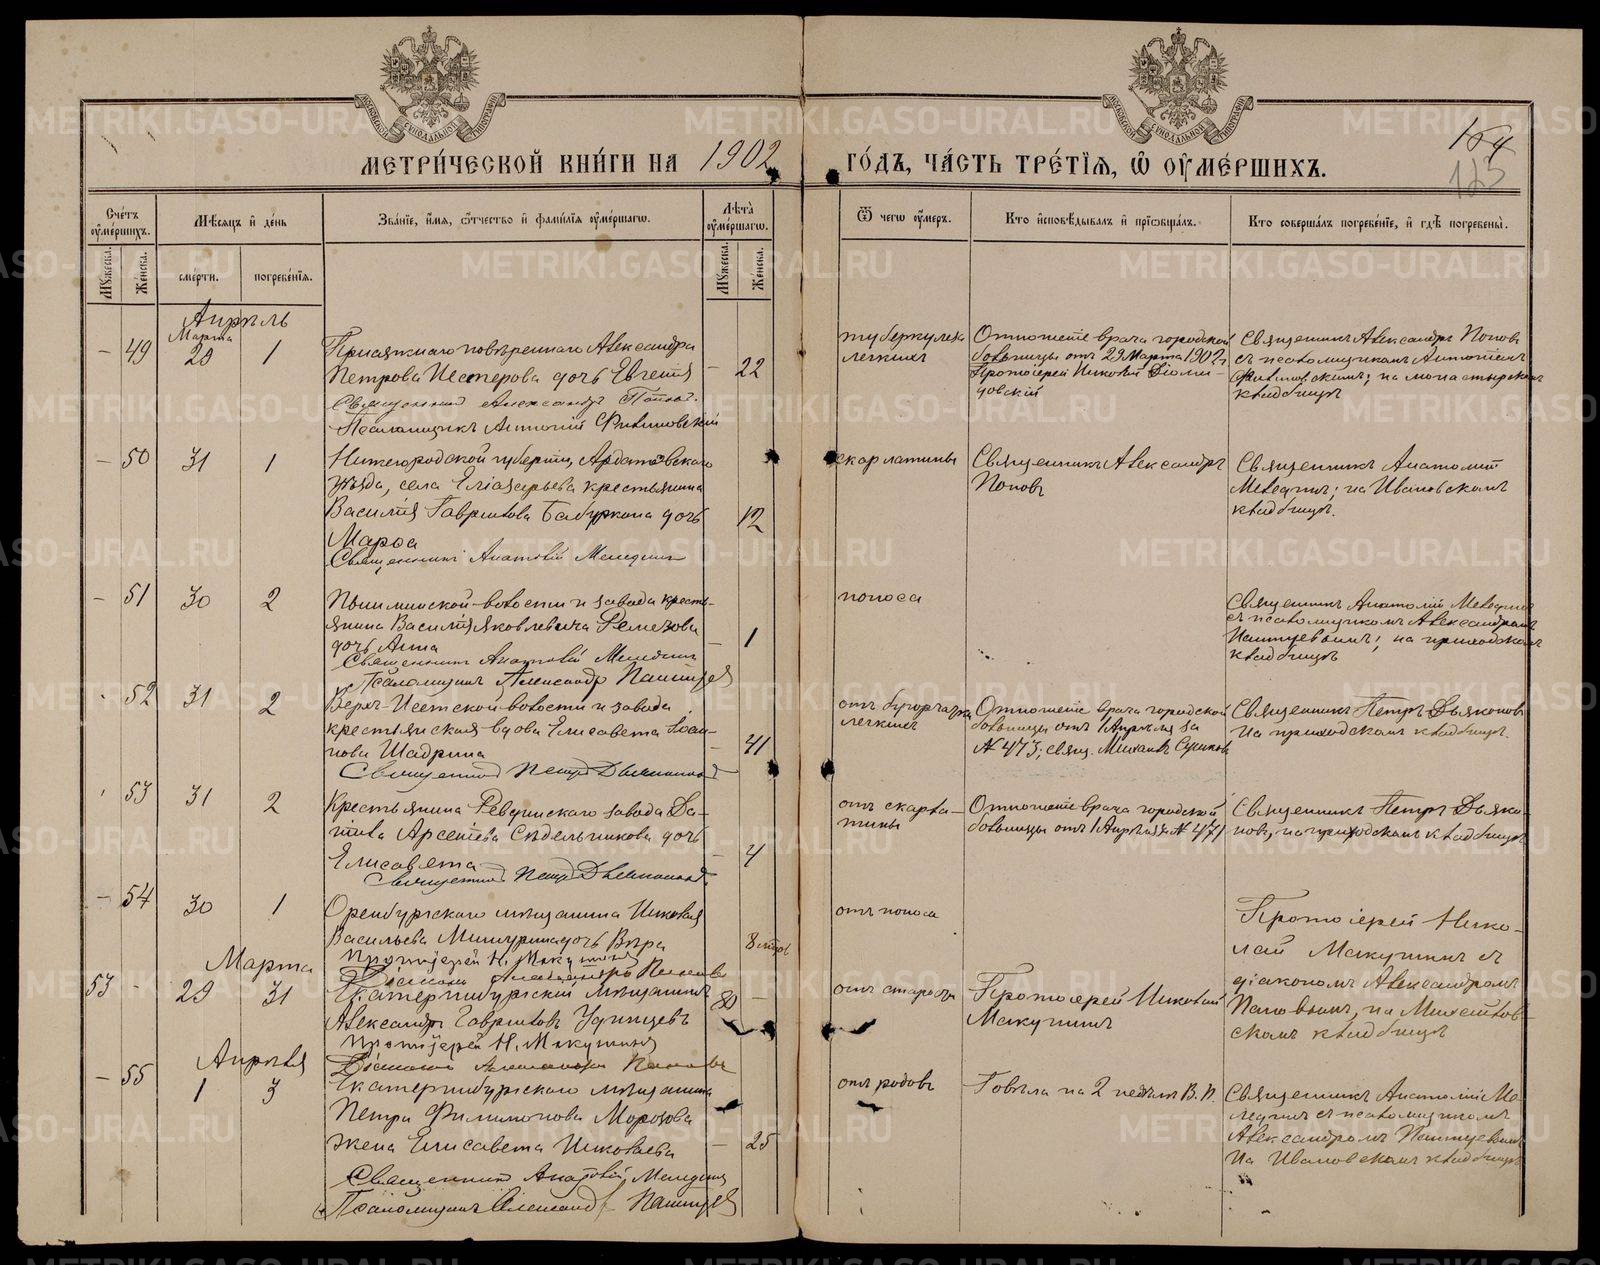 МЕТРИ́ЧЕСКОЙ КНИ́ГИ НА 1902 ГО́ДЪ, ЧА́СТЬ ТРЕ́ТІѦ, Ѿ ОУМЕ́РШИХЪ.
154
125
Сче́тъ оумéршихъ.
Мѣ́сяцъ и де́нь
Зва́ніе, и́мя, о́тчество и фами́лія оумéршагω.
Лѣ́та оумéршагω.
Ѿ чегω оу́меръ.
Кто исповѣ́дывалъ и пріωбща́лъ.
Кто соверша́лъ погребе́ніе, и гдѣ̀ погребены̀.
Мꙋ́жеска.
Же́нска.
сме́рти.
погребе́нія.
Мꙋ́жеска.
Же́нска.
Апрѣль
Марта
– 49 29 1
Присяжнаго повѣреннаго Александра
Петрова Нестерова дочь Евгенія
– 22
Священникъ Александръ Поповъ.
Псаломщикъ Антоній Филиповскій
туберкулеза
легкихъ
Отношеніе врача городской
больницы отъ 29 Марта 1902 г.
Протоіерей Николай Діоми-
довскій
Священникъ Александръ Поповъ
съ псаломщикомъ Антоніемъ
Филиповскимъ; на монастырскомъ
кладбищѣ
– 50 31 1
Нижегородской губерніи, Ардатовскаго
уѣзда, села Еліазарьева крестьянина
Василія Гаврилова Бабуркина дочь
12
Марѳа
Священникъ Анатолій Мелединъ
скарлатины
Священникъ Александръ
Поповъ
Священникъ Анатолій
Мелединъ; на Ивановскомъ
кладбищѣ.
– 51 30 2
Пышминской волости и завода кресть-
янина Василія Яковлевича Ремезова
дочь Анна
– 1
Священникъ Анатолій Мелединъ
Псаломщикъ Александръ
поноса
Священникъ Анатолій Мелединъ
съ псаломщикомъ Александромъ
на приходскомъ
кладбищѣ
52 31 2
Верхъ-Исетской волости и завода
крестьянская вдова Елисавета Іоан-
нова Шадрина
– 41
Священникъ Петръ Дьяконовъ
отъ бугорчатки
легкихъ
Отношеніе врача городской
больницы отъ 1 Апрѣля за
№ 473; свящ. Михаилъ
Священникъ Петръ Дьяконовъ
На приходскомъ кладбищѣ.
53 31 2
Крестьянина Ревдинскаго завода Да-
нила Арсеніева Сѣдельникова дочь
– 4
Елисавета
Священникъ Петръ Дьяконовъ
отъ скарла-
тины
Отношеніе врача городской
больницы отъ 1 Апрѣля № 471
Священникъ Петръ Дьяко-
новъ, на приходскомъ кладбищѣ
– 54 30 1
Оренбургскаго мѣщанина Николая
Васильева Мишурина дочь Вѣра
8 мѣс
Протоіерей Н. Макушинъ
Діаконъ Александръ
отъ поноса
Протоіерей Нико-
лай Макушинъ съ
діакономъ Александромъ
на
кладбищѣ
Марта
53 - 29 31
Екатеринбургскій мѣщанинъ
Александръ Гавриловъ Удинцевъ
80 –
Протоіерей Н. Макушинъ
Діаконъ
отъ старости
Протоіерей Николай
Макушинъ
Апрѣля
– 55 1 3
Екатеринбургскаго мѣщанина
Петра Филимонова Морозова
жена Елисавета Николаева
– 25
Священникъ Анатолій Мелединъ
Псаломщикъ Александръ
отъ родовъ
Говѣла на 2 недѣлѣ В. П.
Священникъ Анатолій Ме-
лединъ съ псаломщикомъ
Александромъ
На Ивановскомъ кладбищѣ
METRIKI.GASO-URAL.RU